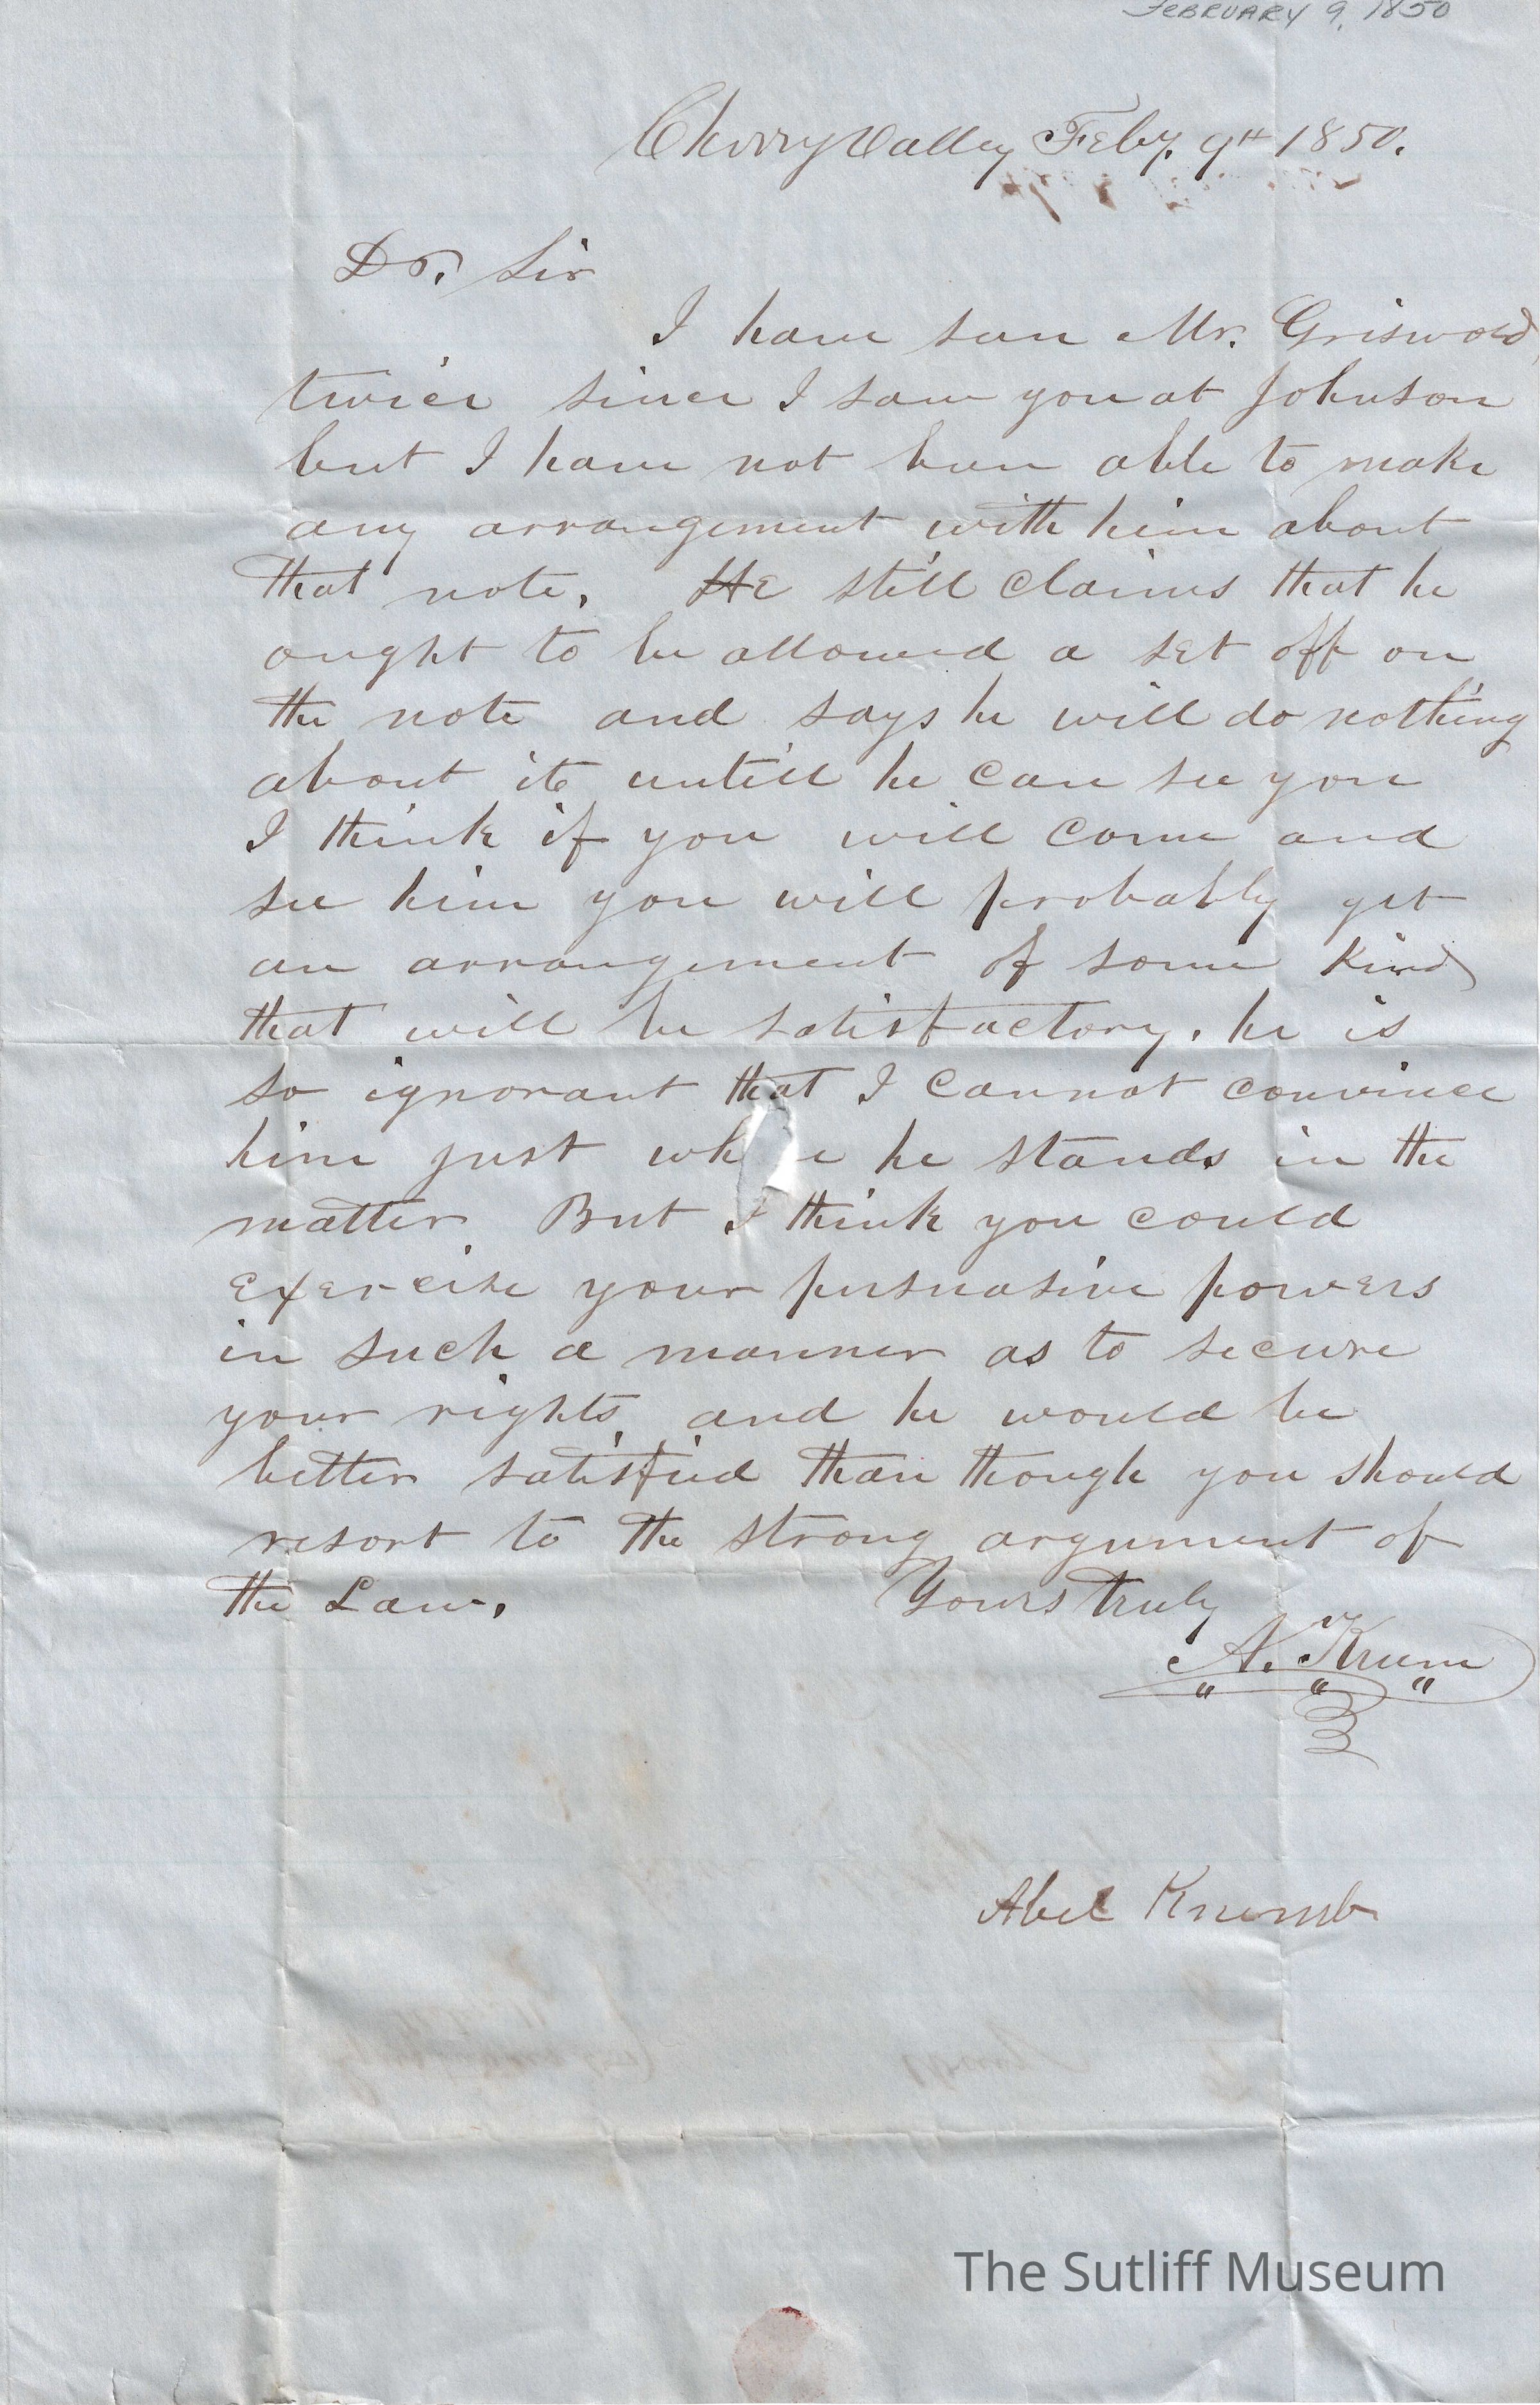 FEBRUARY 9, 1850
Cherry Valley Feby. 9th 1850.
Dr. Sir
I have seen Mr. Griswold
twice since I saw you at Johnson
but I have not been able to make
any arrangement with him about
that note. He still claims that he
ought to be allowed a set off on
the note and says he will do nothing
about it untill he can see you
I think if you will come and
see him you will probably get
an arrangement of some kind
that will be satisfactory. he is
so ignorant that I cannot convince
him just wh e he stands in the
matter. But I think you could
exercise your persuasive powers
in such a manner as to secure
your rights, and he would be
better satisfied than though you should
resort to the strong argument of
the Law. Yours truly
A. Krum
" " "
Abel Krumb
The Sutliff Museum